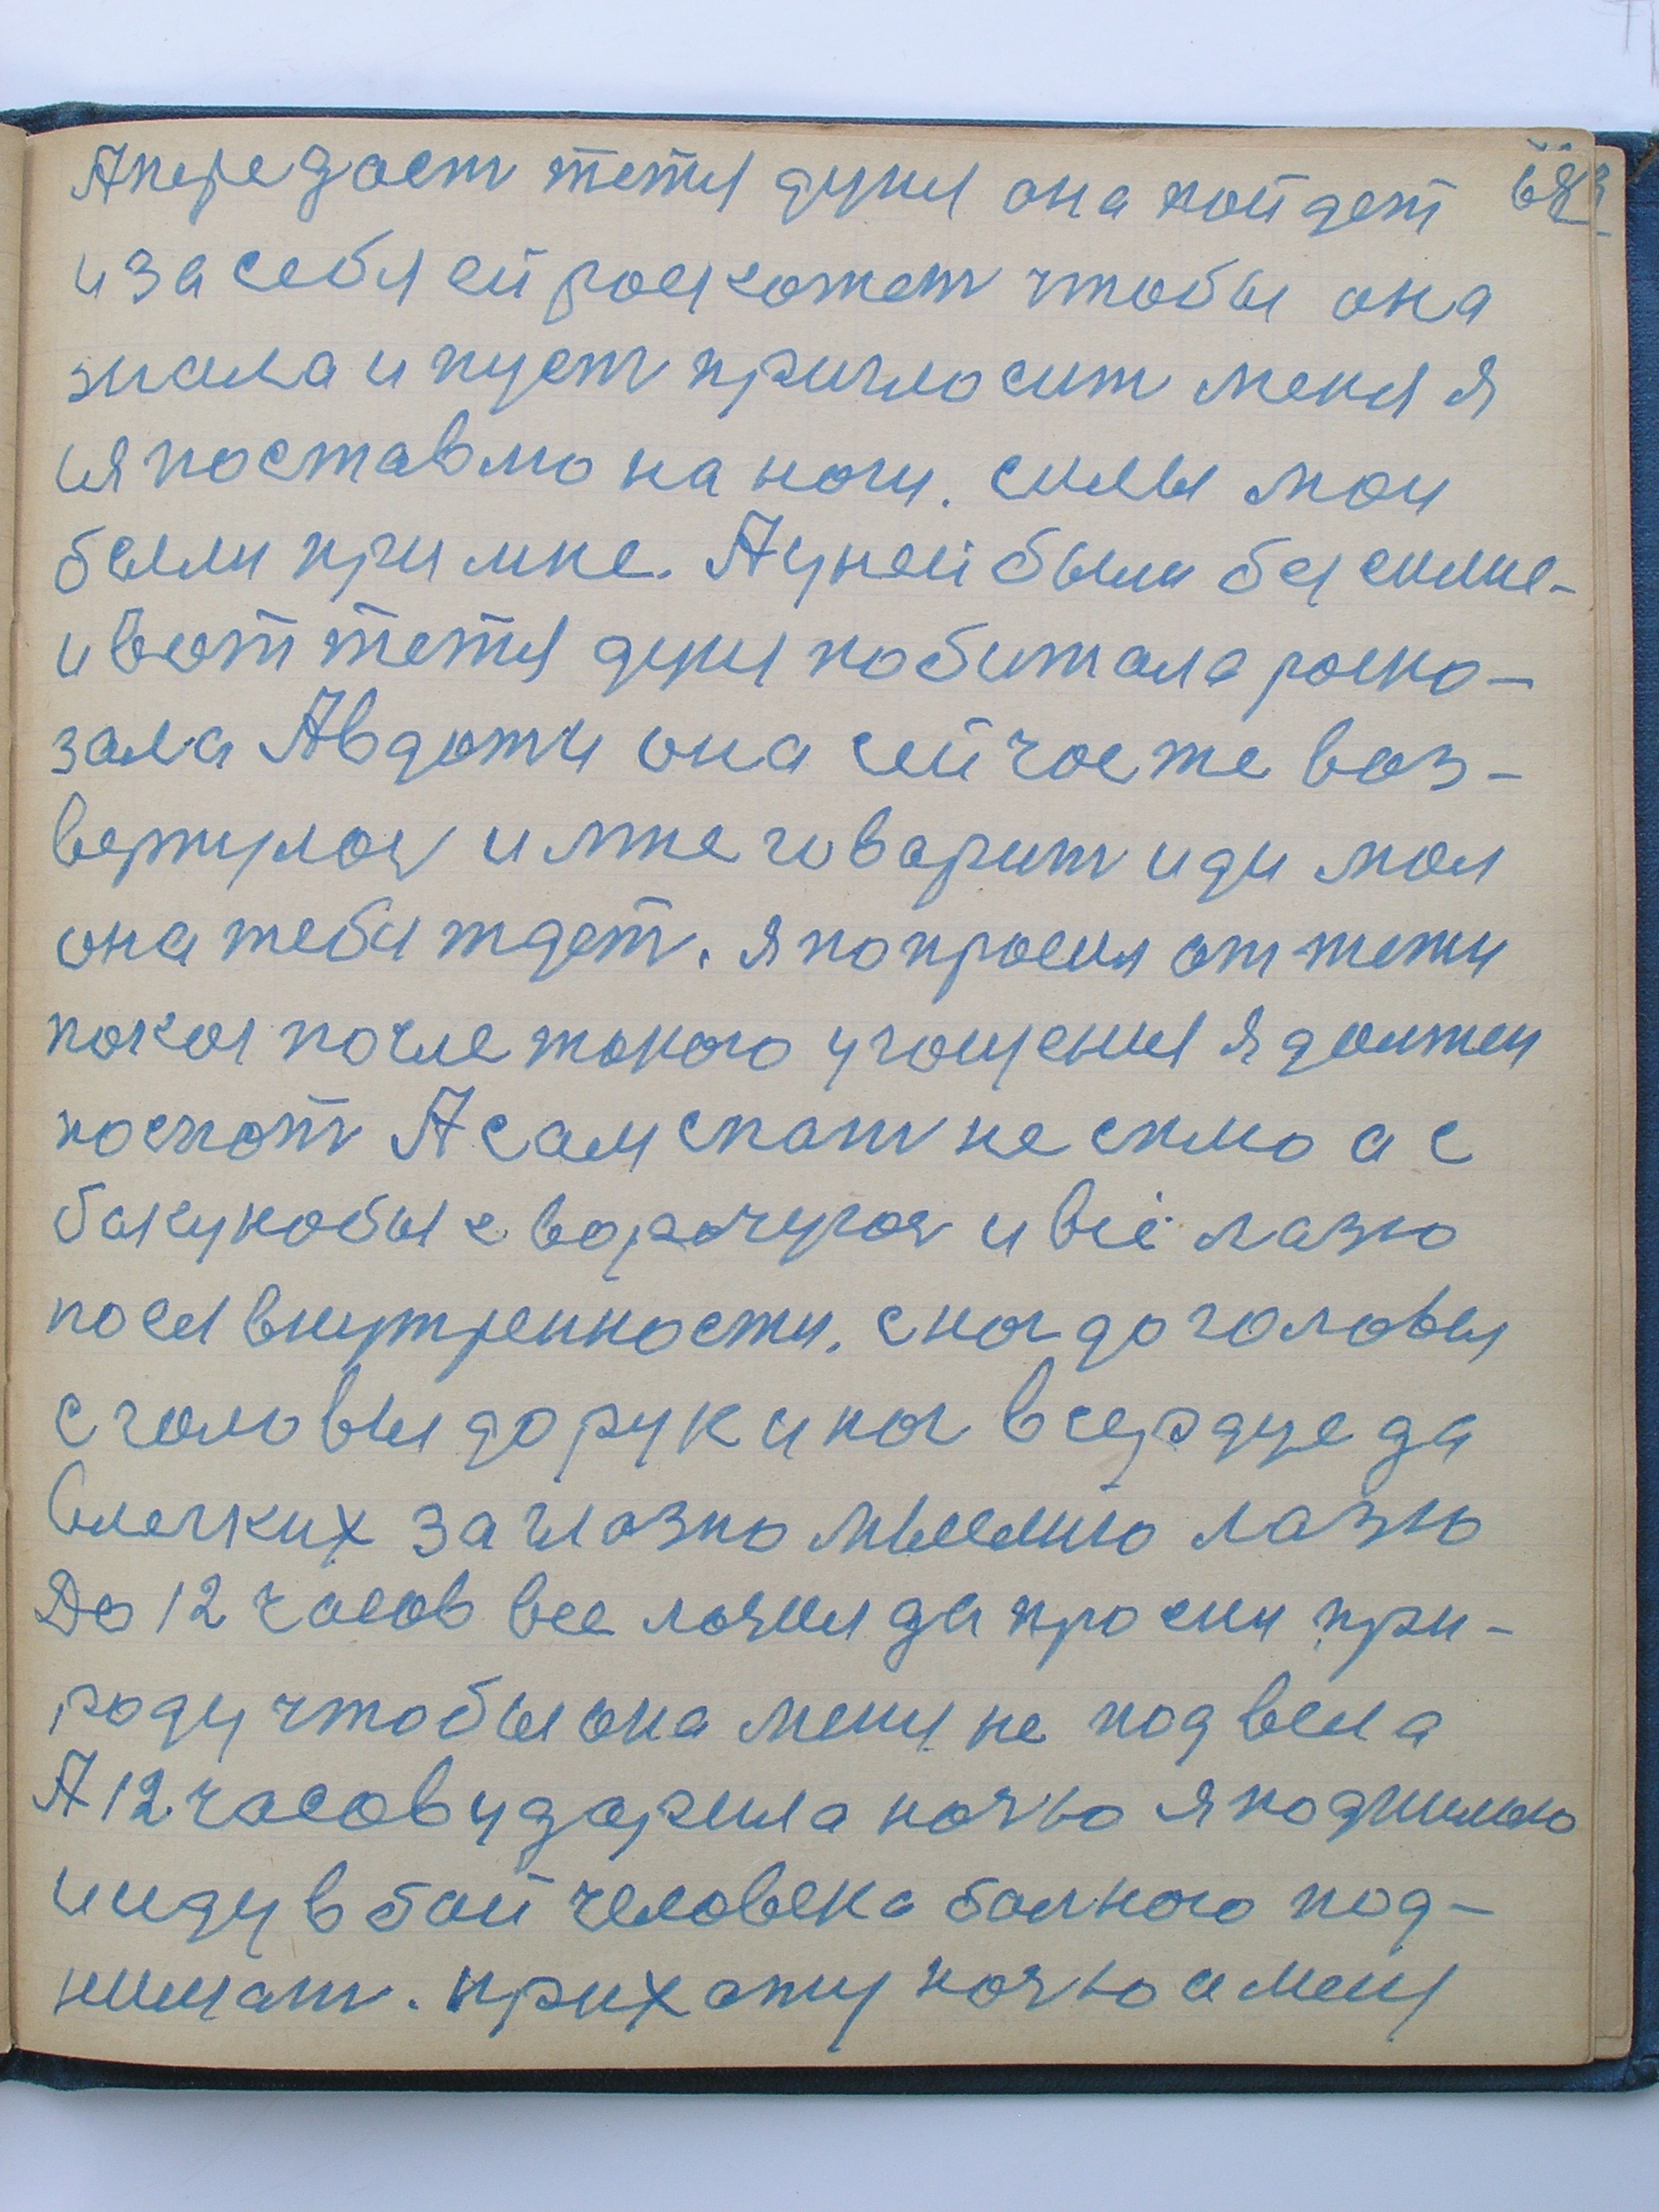 А передаст тетя дуня она пойдет
и за себя ей роскожет чтобы она
знала и пуст приглосит меня я
ия поставлю на ноги. силы мои
были при мне. А у ней были бесилие-
и вот тетя дуня побижала роско-
зала Авдоти она сейчас же воз-
вернулас и мне говарит иди мол
она тебя ждет. я попросил от тети
покоя после токого угощения я должен
поспат А сам спат не сплю а с
боку на бык ворочуюс и всё лазю
по ея внутренности. с ног до головы
с головы до рук и ног в сердце да
влегких заглазно мыслию лазю
До 12 часов все лазил да просил при-
роду чтобы она меня не подвела
А 12 часов ударила ночю я поднимаю
и иду в бой человека болного под-
нимат. прихожу ночю а меня